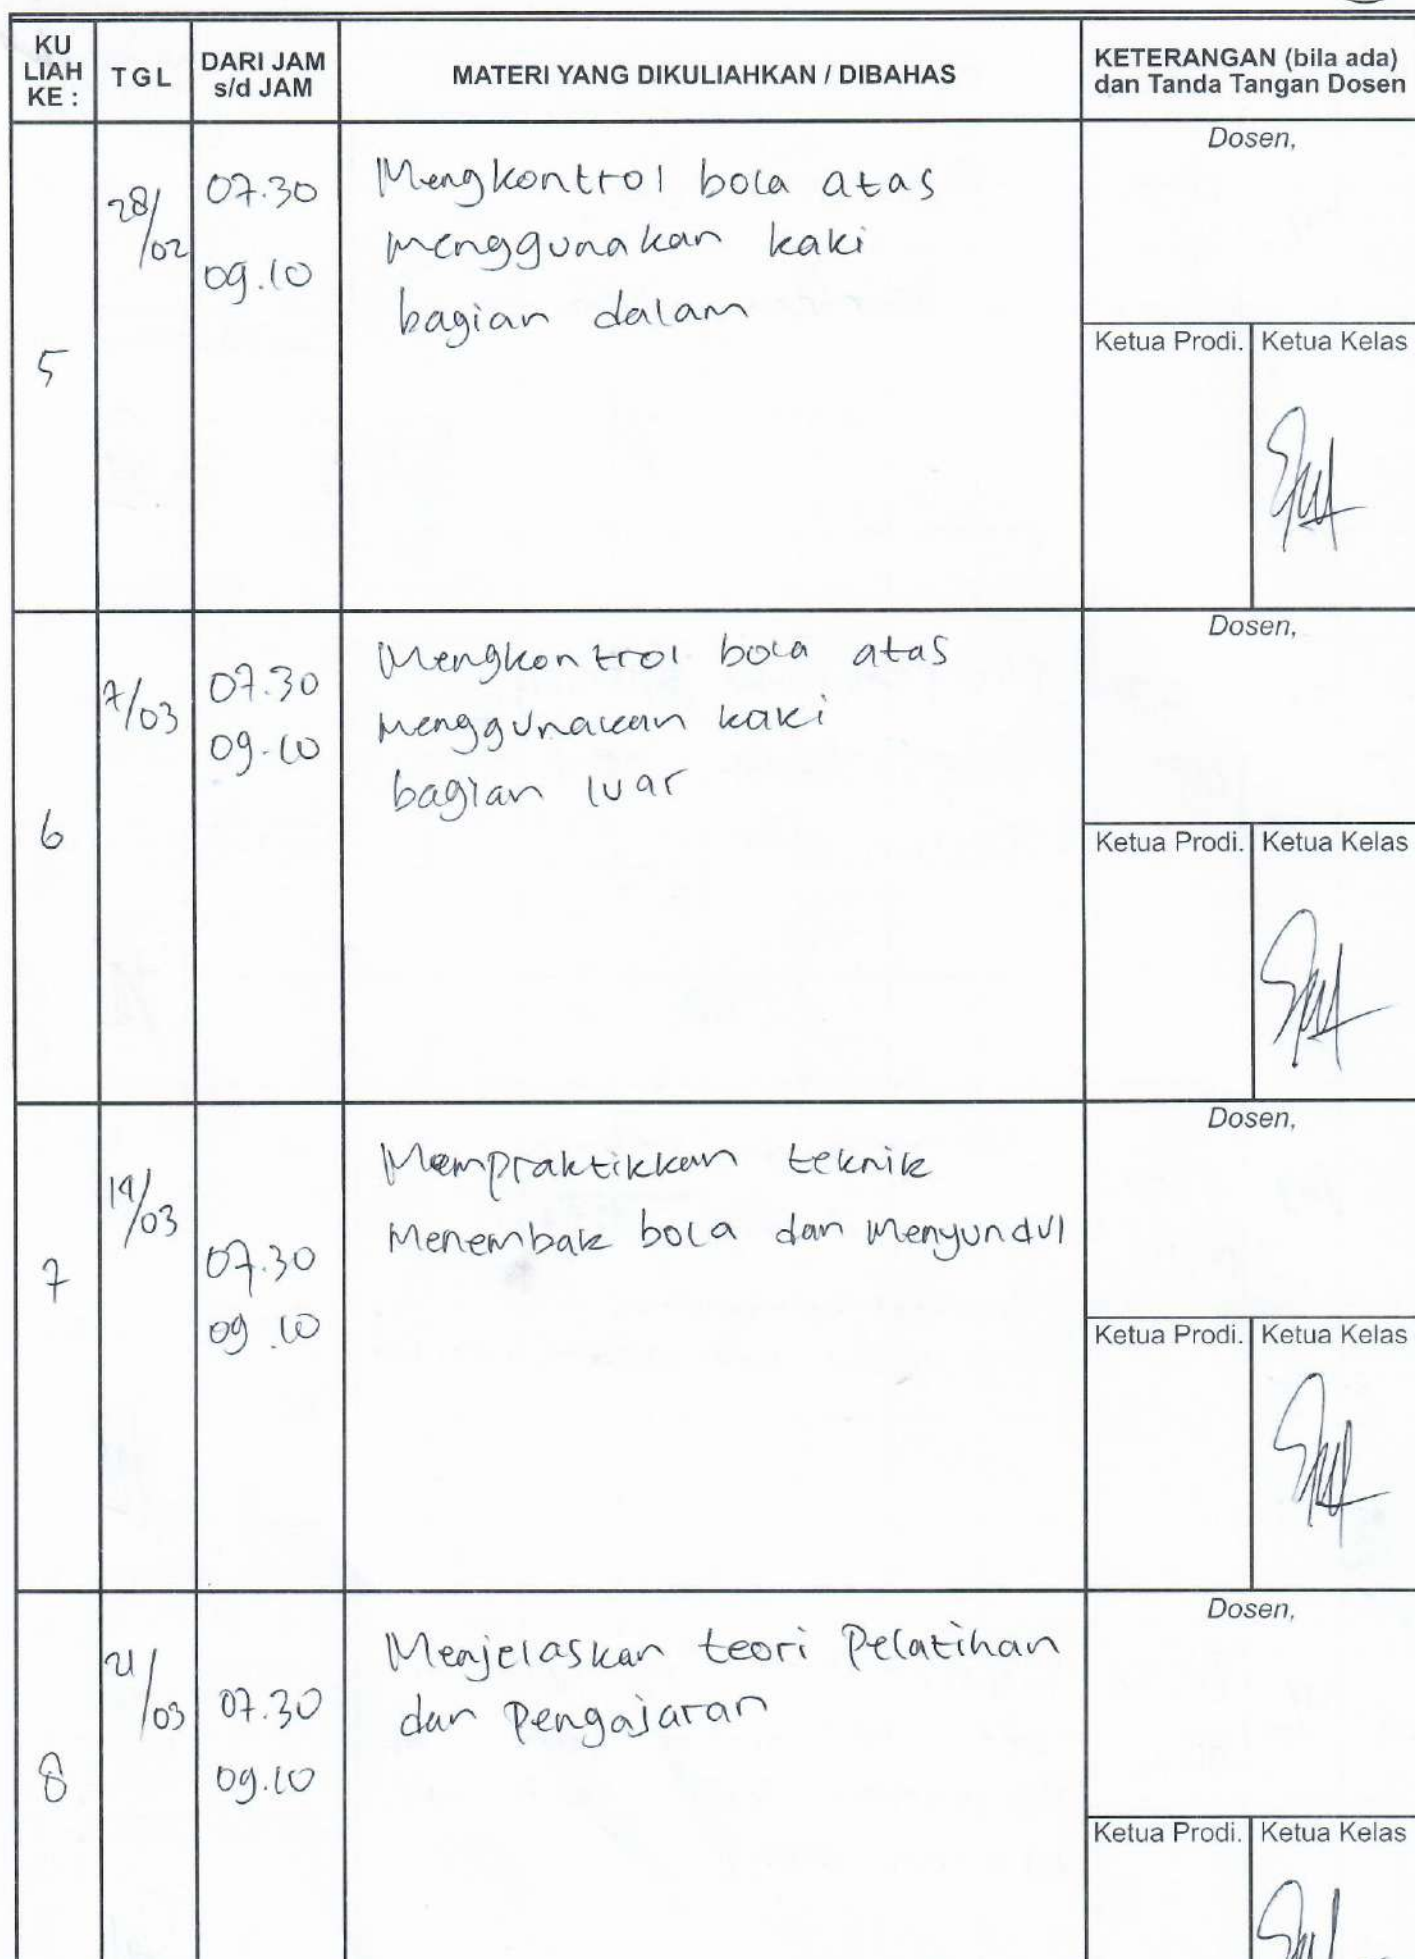 KU LIAH KE : TGL DARI JAM s/d JAM MATERI YANG DIKULIAHKAN / DIBAHAS KETERANGAN (bila ada) dan Tanda Tangan Dosen
5
28/02
07.30
09.10
Mengkontrol bola atas
menggunakan kaki
bagian dalam
Dosen,
Ketua Prodi. Ketua Kelas
6
7/03
07.30
09.10
Mengkontrol bola atas
menggunakan kaki
bagian luar
Dosen,
Ketua Prodi. Ketua Kelas
7
14/03
07.30
09.10
Mempraktikkan teknik
Menembak bola dan Menyundul
Dosen,
Ketua Prodi. Ketua Kelas
8
21/03
07.30
09.10
Menjelaskan teori Pelatihan
dan Pengajaran
Dosen,
Ketua Prodi. Ketua Kelas